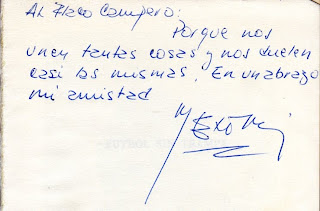 Al Flaco Campero:
Porque nos
unen tantas cosas y nos duelen
casi las mismas. En un abrazo
mi amistad